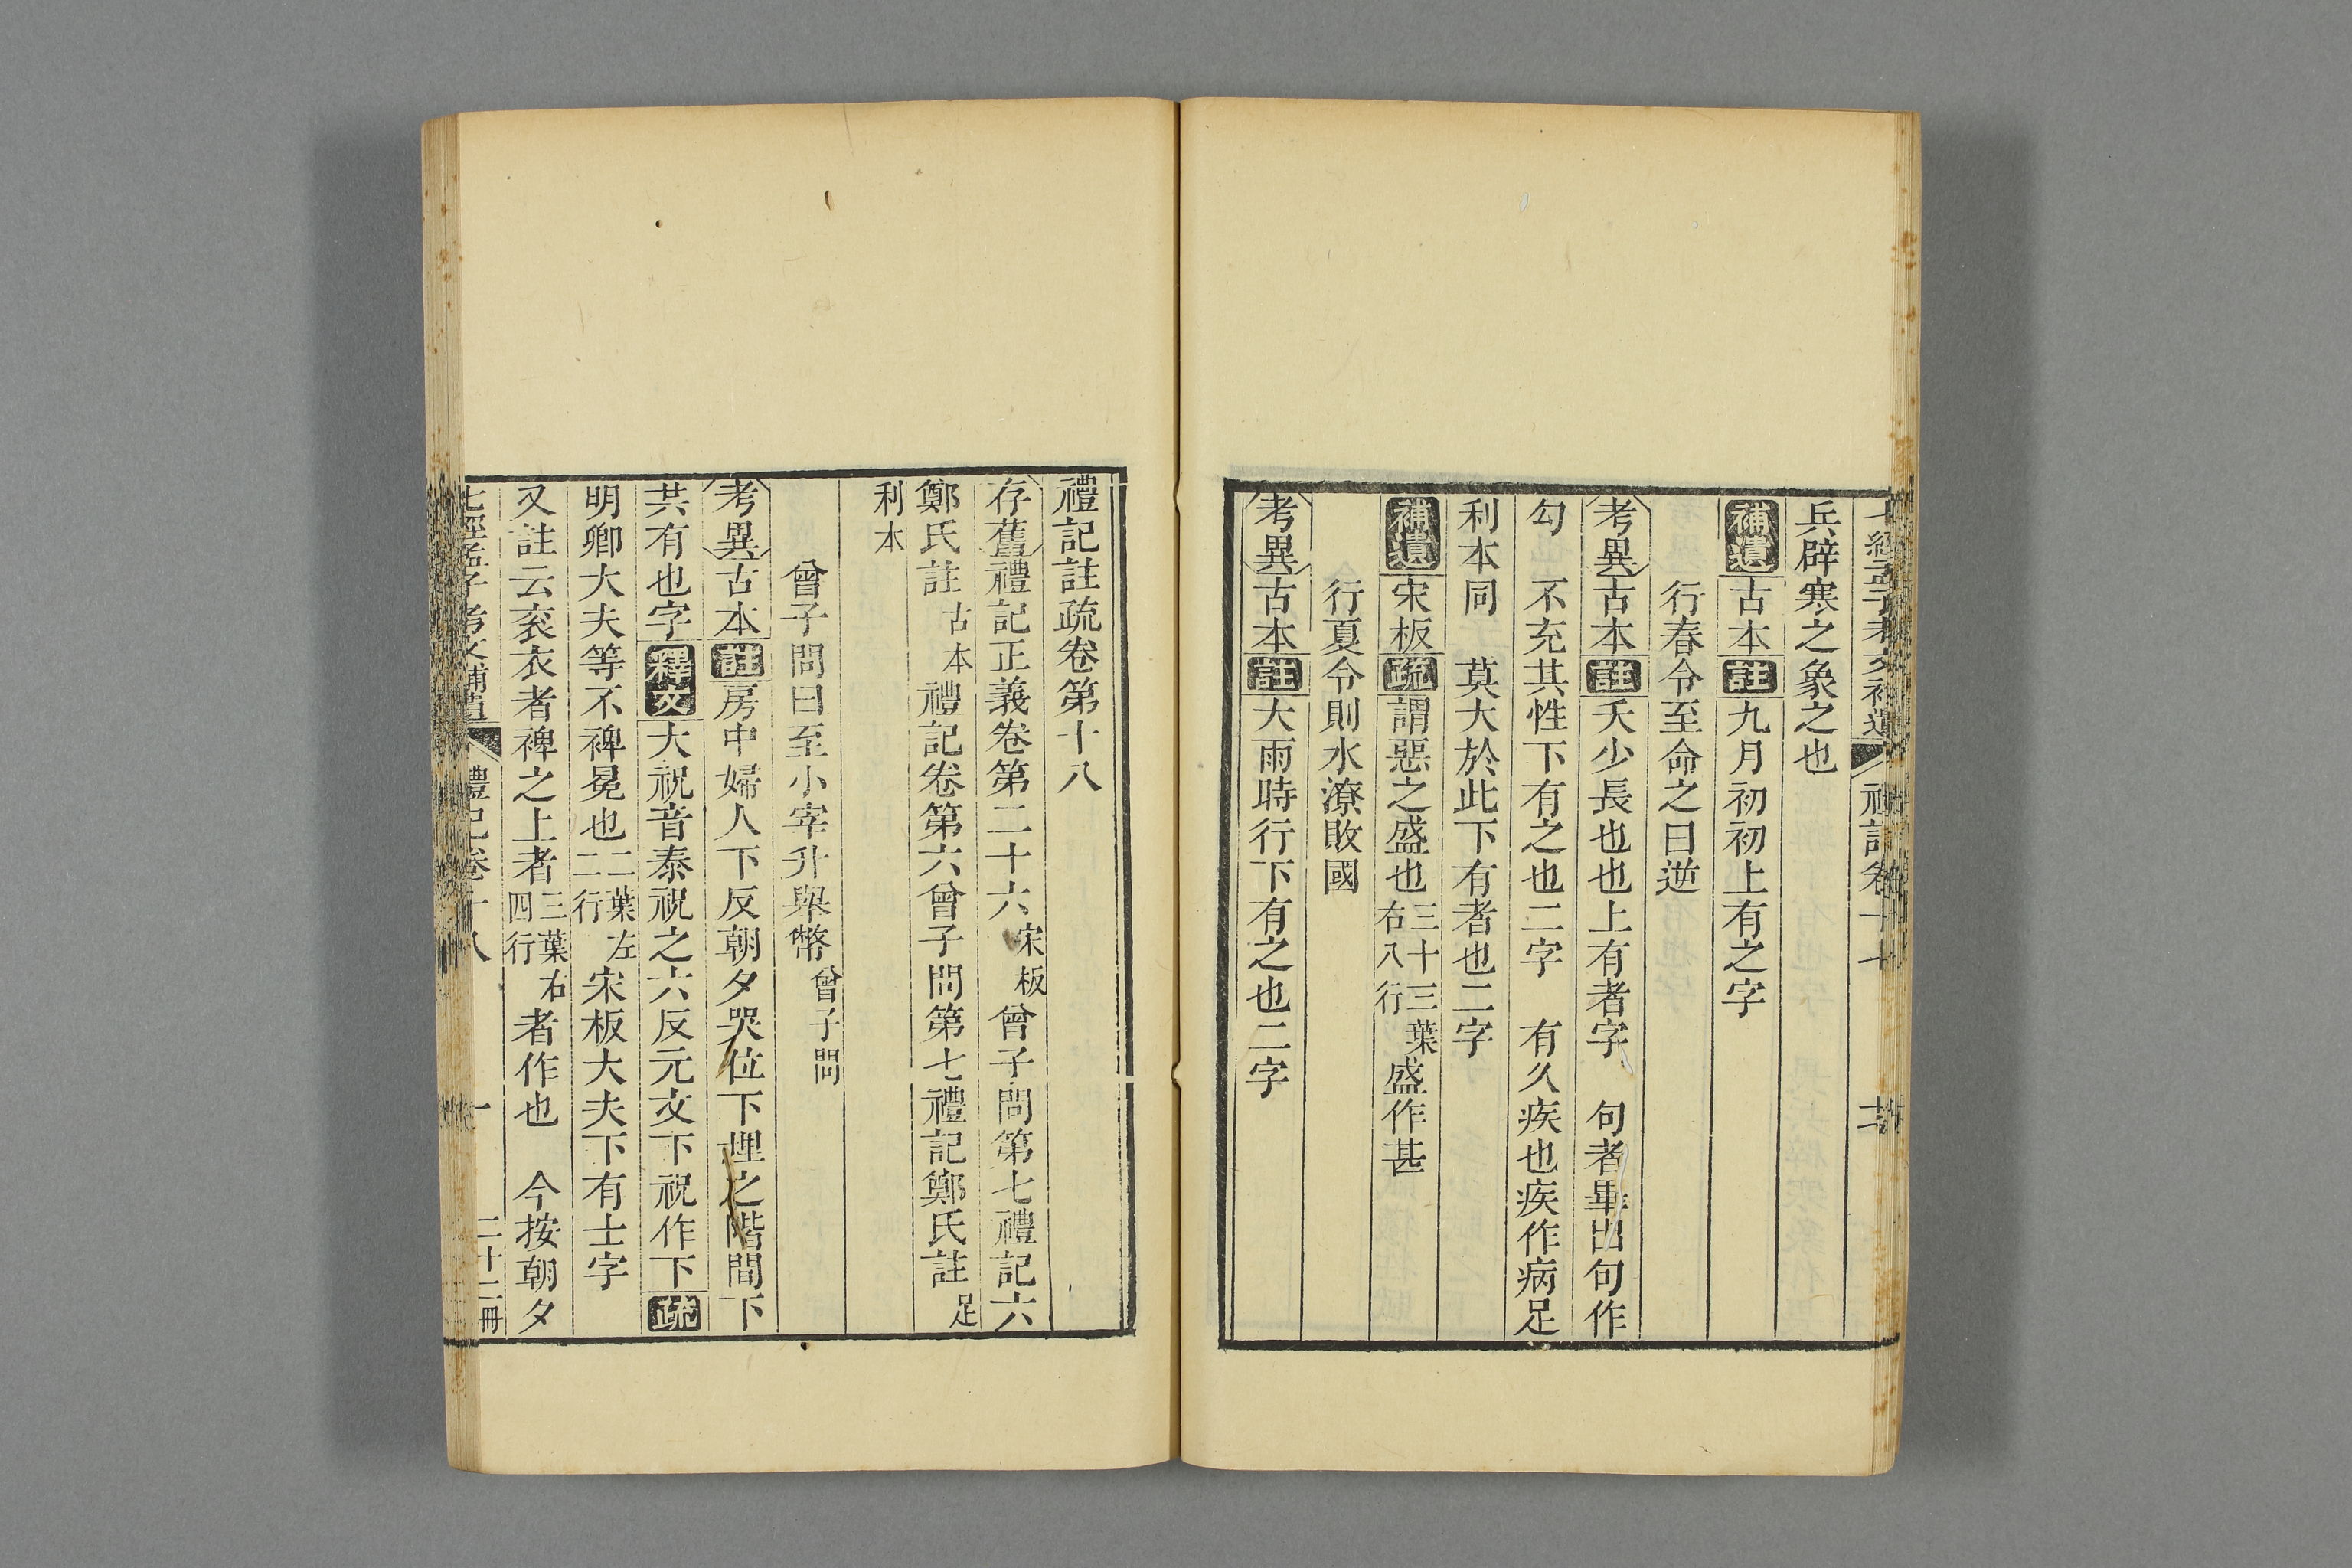 兵辟寒之象之也
補遺古本註九月初初上有之字
行春令至命之曰逆
考異古本註夭少長也也上有者字　句者畢出句作
勾　不充其性下有之也二字　有久疾也疾作病足
利本同　莫大於此下有者也二字
補遺宋板疏謂惡之盛也三十三葉右八行盛作甚
行夏令則水潦敗國
考異古本註大雨時行下有之也二字
禮記註疏卷第十八
存舊禮記正義卷第二十六宋板曾子問第七禮記六
鄭氏註古本禮記卷第六曾子問第七禮記鄭氏註足
利本
曾子問曰至小宰升舉幣曾子問
考異古本註房中婦人下反朝夕哭位下埋之階間下
共有也字釋文大祝音泰祝之六反元文下祝作下疏
明卿大夫等不裨冕也二葉左二行宋板大夫下有士字
又註云衮衣者裨之上者三葉右四行者作也　今按朝夕
七經孟子考文補遺　禮記卷十八　一　二十二冊